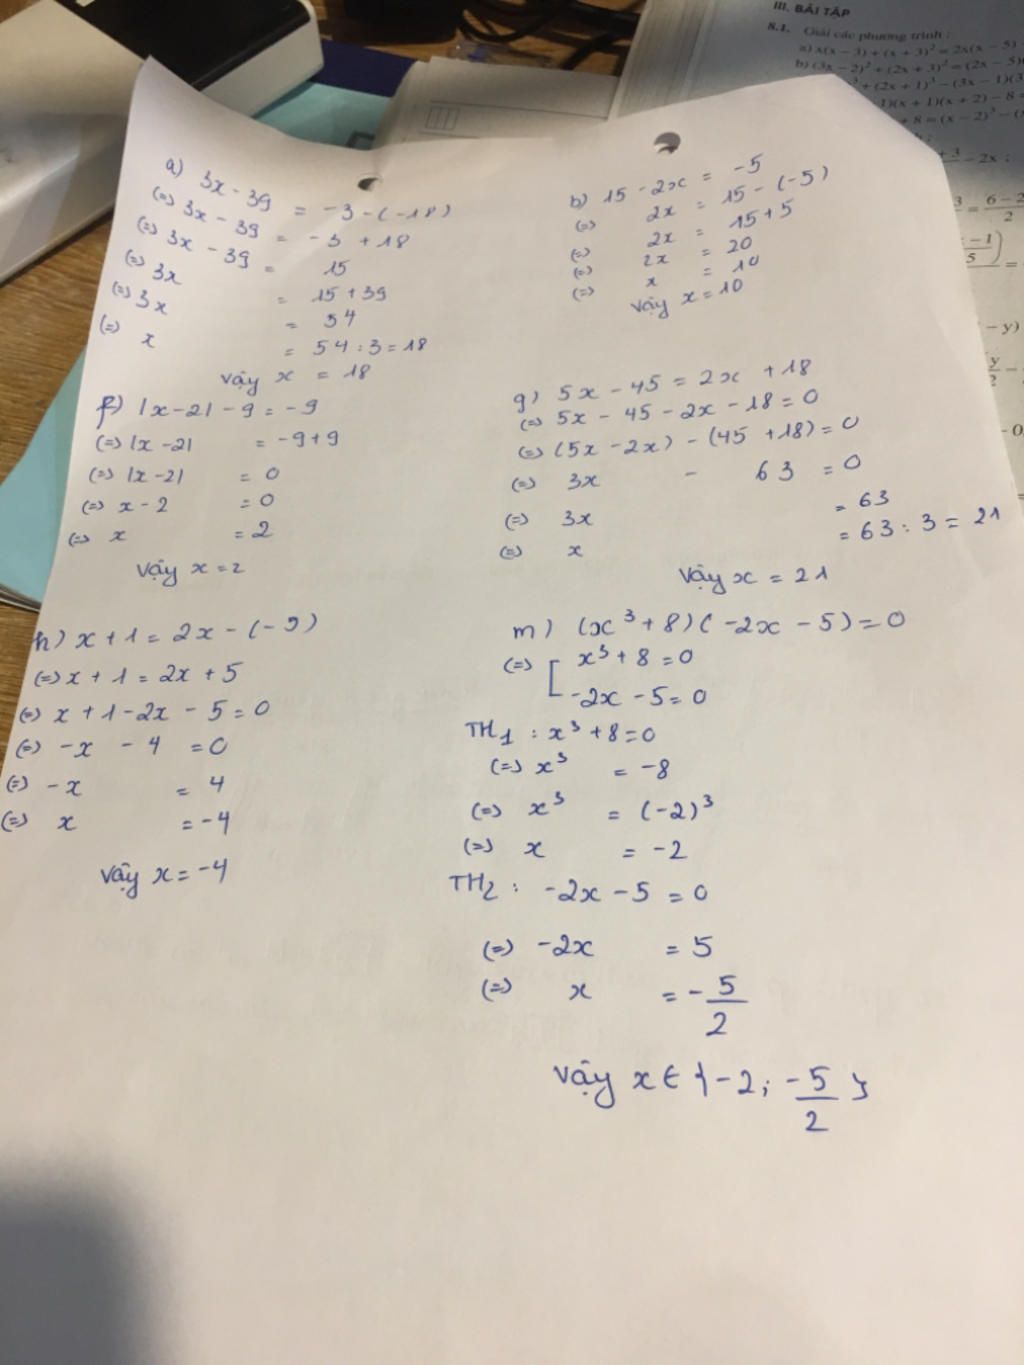 III. BÀI TẬP
8.1. Giải các phương trình :
a) x(x − 3) + (x + 3)² = 2x(x − 5)
b) (3x − 2)² + (2x + 3)² = (2x − 5)(
+ (2x + 1)³ − (3x − 1)(3
)(x + 1)(x + 2) − 8 =
+ 8 = (x − 2)³ − (
a) 3x - 39 = -3 - (-18)
(=) 3x - 39 = -3 + 18
(=) 3x - 39 = 15
(=) 3x = 15 + 39
(=) 3x = 54
(=) x = 54 : 3 = 18
Vậy x = 18
b) 15 - 2x = -5
(=) 2x = 15 - (-5)
(=) 2x = 15 + 5
(=) 2x = 20
(=) x = 10
Vậy x = 10
f) |x - 2| - 9 = -9
(=) |x - 2| = -9 + 9
(=) |x - 2| = 0
(=) x - 2 = 0
(=) x = 2
Vậy x = 2
g) 5x - 45 = 2x + 18
(=) 5x - 45 - 2x - 18 = 0
(=) (5x - 2x) - (45 + 18) = 0
(=) 3x - 63 = 0
(=) 3x = 63
(=) x = 63 : 3 = 21
Vậy x = 21
h) x + 1 = 2x - (-5)
(=) x + 1 = 2x + 5
(=) x + 1 - 2x - 5 = 0
(=) -x - 4 = 0
(=) -x = 4
(=) x = -4
Vậy x = -4
m) (x³ + 8)(-2x - 5) = 0
(=) [ x³ + 8 = 0
-2x - 5 = 0
TH1 : x³ + 8 = 0
(=) x³ = -8
(=) x³ = (-2)³
(=) x = -2
TH2 : -2x - 5 = 0
(=) -2x = 5
(=) x = -5/2
Vậy x ∈ {-2; -5/2}